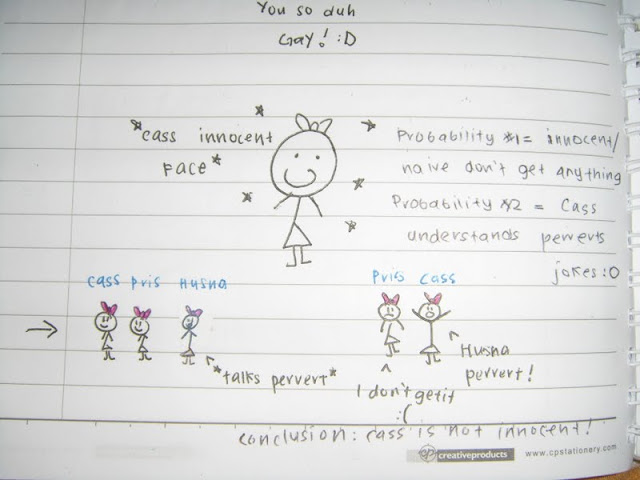 You so duh
Gay! :D
*cass innocent
face*
Probability *1 = innocent/
naive don't get anything
Probability *2 = Cass
understands perverts
jokes :O
cass pris Husna
*talks pervert*
Pris Cass
I don't get it
:(
Husna
pervert!
conclusion: cass is not innocent!
cp creativeproducts www.cpstationery.com